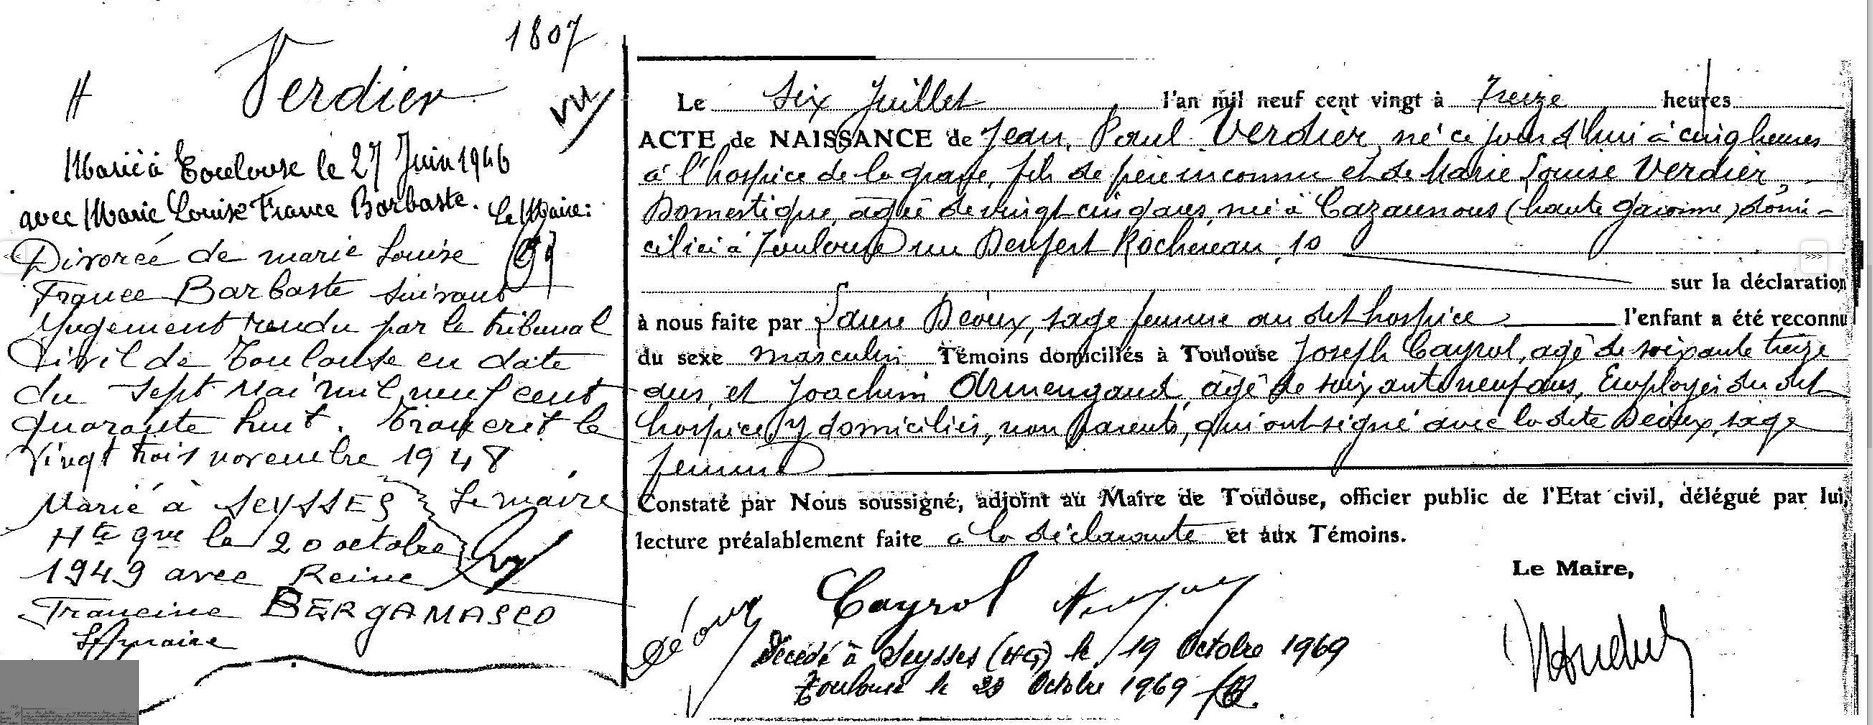 1807
Verdier
VU
Marié à Toulouse le 27 Juin 1946
avec Marie Louise France Barbaste. Le Maire:
Divorcé de marie Louise
France Barbaste suivant
Jugement rendu par le tribunal
Civil de Toulouse en date
du sept Mai mil neuf cent
quarante huit. Transcrit le
Vingt trois novembre 1948
Le maire
Marié à SEYSSES
Hte gne le 20 octobre
1949 avec Reine
Francine BERGAMASCO
Le maire
Le Six Juillet l'an mil neuf cent vingt à Treize heures
ACTE de NAISSANCE de Jean, Paul Verdier, né ce jourd'hui à cinq heures
à l'hospice de la grave, fils de père inconnu et de Marie Louise Verdier,
Domestique, agée de vingt cinq ans, née à Cazaunous (haute garonne) domi-
ciliée à Toulouse rue Denfert Rochereau, 10
sur la déclaration
à nous faite par Laure Déoux, sage femme au dit hospice l'enfant a été reconnu
du sexe masculin Témoins domiciliés à Toulouse Joseph Cayrol, agé de soixante treize
ans, et Joachim Armengaud, agé de soixante neuf ans, Employés du dit
hospice y domiciliés, non parents, qui ont signé avec la dite Déoux, sage
femme
Constaté par Nous soussigné, adjoint au Maire de Toulouse, officier public de l'Etat civil, délégué par lui,
lecture préalablement faite à la déclarante et aux Témoins.
Le Maire,
Cayrol
Déoux
Décédé à Seysses (HG) le 19 Octobre 1969
Toulouse le 23 Octobre 1969
>>>